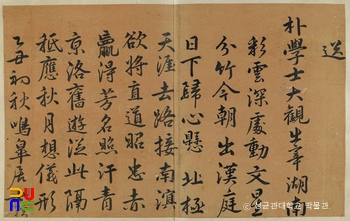 送
朴學士大觀出宰湖南
彩雲深處動文星
分竹今朝出漢庭
日下歸心懸 北極
天涯去路接南溟
欲將直道昭忠赤
贏得芳名照汗青
京洛舊遊從此隔
祗應秋月想儀形
乙丑初秋鳴皋居
성균관대학교 박물관